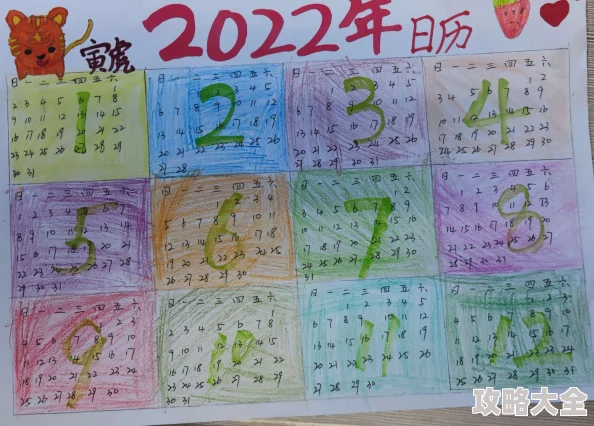 2022年日历
寅虎
日 一 二 三 四 五 六
1
1
2 3 4 5 6 7 8
9 10 11 12 13 14 15
16 17 18 19 20 21 22
23 24 25 26 27 28 29
30 31
日 一 二 三 四 五 六
2
1 2 3 4 5
6 7 8 9 10 11 12
13 14 15 16 17 18 19
20 21 22 23 24 25 26
27 28
日 一 二 三 四 五 六
3
1 2 3 4 5
6 7 8 9 10 11 12
13 14 15 16 17 18 19
20 21 22 23 24 25 26
27 28 29 30 31
日 一 二 三 四 五 六
4
1 2
3 4 5 6 7 8 9
10 11 12 13 14 15 16
17 18 19 20 21 22 23
24 25 26 27 28 29 30
日 一 二 三 四 五 六
5
1 2 3 4 5 6 7
8 9 10 11 12 13 14
15 16 17 18 19 20 21
22 23 24 25 26 27 28
29 30 31
日 一 二 三 四 五 六
6
1 2 3 4
5 6 7 8 9 10 11
12 13 14 15 16 17 18
19 20 21 22 23 24 25
26 27 28 29 30
日 一 二 三 四 五 六
7
1 2
3 4 5 6 7 8 9
10 11 12 13 14 15 16
17 18 19 20 21 22 23
24 25 26 27 28 29 30
31
日 一 二 三 四 五 六
8
1 2 3 4 5 6
7 8 9 10 11 12 13
14 15 16 17 18 19 20
21 22 23 24 25 26 27
28 29 30 31
日 一 二 三 四 五 六
9
1 2 3
4 5 6 7 8 9 10
11 12 13 14 15 16 17
18 19 20 21 22 23 24
25 26 27 28 29 30
日 一 二 三 四 五 六
10
1
2 3 4 5 6 7 8
9 10 11 12 13 14 15
16 17 18 19 20 21 22
23 24 25 26 27 28 29
30 31
日 一 二 三 四 五 六
11
1 2 3 4 5
6 7 8 9 10 11 12
13 14 15 16 17 18 19
20 21 22 23 24 25 26
27 28 29 30
日 一 二 三 四 五 六
12
1 2 3
4 5 6 7 8 9 10
11 12 13 14 15 16 17
18 19 20 21 22 23 24
25 26 27 28 29 30 31
攻略大全